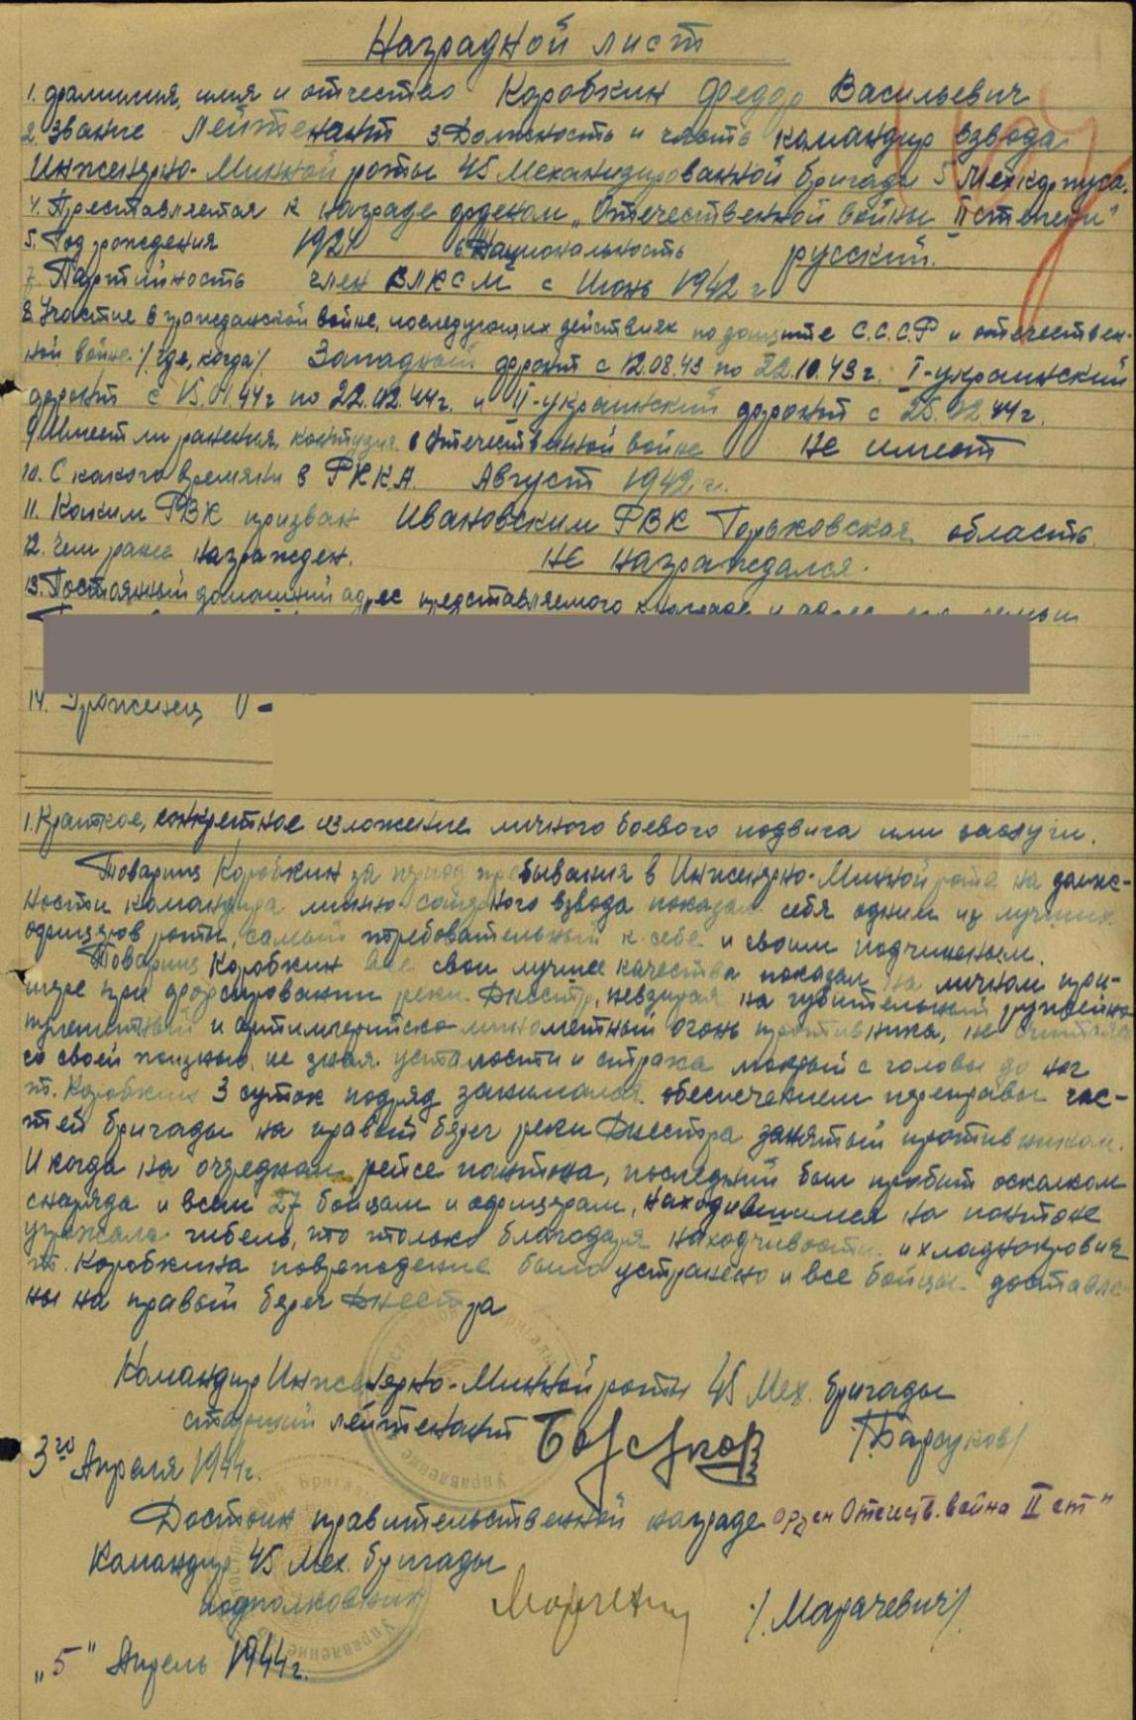 Наградной лист
1. фамилия, имя и отчество Коробкин Федор Васильевич
2. Звание Лейтенант 3. Должность и часть командир взвода
Инженерно-Минной роты 45 Механизированной бригады 5 Мехкорпуса.
4. Преставляется к награде орденом „Отечественной войны II степени"
5. Год рождения 1921 6. Национальность русский.
7. Партийность член ВЛКСМ с Июнь 1942 г.
8. Участие в гражданской войне, последующих действиях по защите С.С.С.Р и отечествен-
ной войне. /где, когда/ Западный фронт с 12.08.43 по 22.10.43 г. I-украинский
фронт с 15.01.44 г по 22.02.44 г. и II-украинский фронт с 25.02.44 г.
9. Имеет ли ранения, контузия в отечественной войне не имеет
10. С какого времяни в РККА. Август 1942 г.
11. Каким РВК призван Ивановским РВК Горьковская область.
12. Чем ранее награжден. не награждался.
13. Постоянный домашний адрес представляемого к награде и адрес его семьи
14.
1. Краткое, конкретное изложение личного боевого подвига или заслуги.
Товарищ Коробкин за период пребывания в Инженерно-Минной роте на долж-
ности командира минно-сапёрного взвода показал себя одним из лучших
офицеров роты, самый требовательный к себе и своим подчиненым.
Товарищ Коробкин все свои лучшее качества показал на личном при-
мере при форсировании реки Днестр, невзирая на губительный ружейно
пулеметный и артиллерийско-минометный огонь противника, не считаясь
со своей жизнью, не зная усталости и страха мокрый с головы до ног
т. Коробкин 3 суток подряд занимался обеспечением переправы час-
тей бригады на правый берег реки Днестра занятый противником.
И когда на очередном рейсе понтона, последний был пробит осколком
снаряда и всем 27 бойцам и офицерам, находившимся на понтоне
угрожала гибель, то только благодаря находчивости и хладнокровия
т. Коробкина повреждение было устранено и все бойцы доставле-
ны на правый берег Днестра
Командир Инженерно-Минной роты 45 Мех. бригады
старший лейтенант /Барсуков/
3го Апреля 1944 г.
Достоин правительственной награде орден Отечеств. война II ст"
Командир 45 Мех. бригады
подполковник /Марачевич/
„5" Апрель 1944 г.